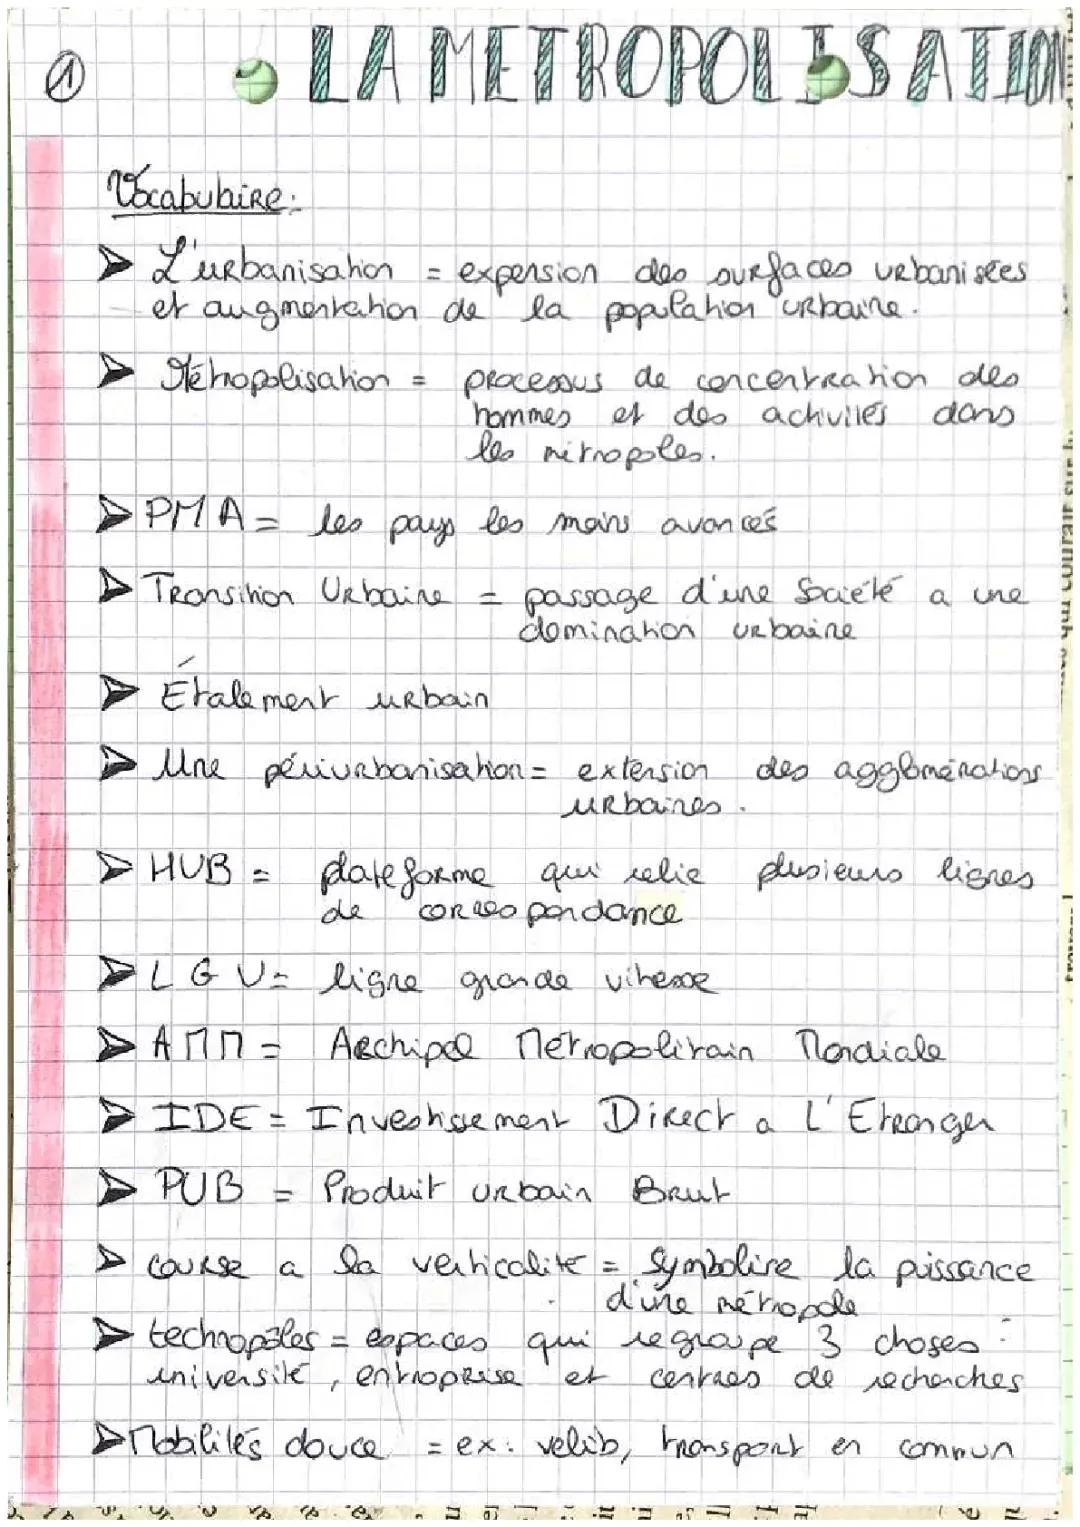 1
LA METROPOLISATION
Vocabulaire:
L'urbanisation = expension des surfaces urbanisées
et augmentation de la population urbaine.
Métropolisation = processus de concentration des
hommes et des activités dans
les métropoles.
PMA = les pays les moins avancés
Transition Urbaine = passage d'une Société a une
domination urbaine
Étalement urbain
Une périurbanisation = extension des agglomérations
urbaines.
HUB = plateforme qui relie plusieurs lignes
de correspondance
LGV = ligne grande vitesse
AMM = Archipel Métropolitain Mondiale
IDE = Investissement Direct a L'Etranger
PUB = Produit urbain Brut
course a la verticalité = Symbolise la puissance
d'une métropole
technopôles = espaces qui regroupe 3 choses :
université, entreprise et centres de recherches
Mobilités douce = ex: velib, transport en commun